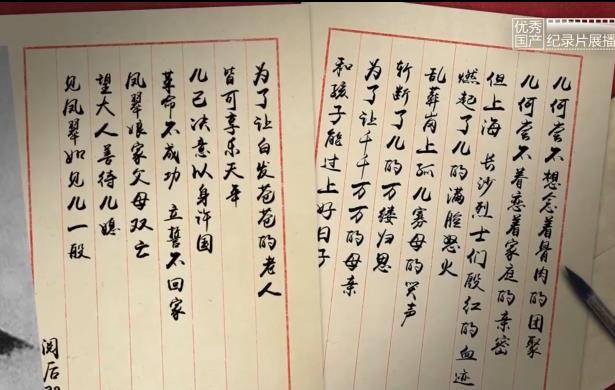 优秀
国产
纪录片展播
儿何尝不想念着骨肉的团聚
儿何尝不着恋着家庭的亲密
但上海 长沙烈士们殷红的血迹
燃起了儿的满腔怒火
乱葬岗上孤儿寡母的哭声
斩断了儿的万缕归思
为了让千千万万的母亲
和孩子能过上好日子
为了让白发苍苍的老人
皆可享乐天年
儿已决意以身许国
革命不成功 立誓不回家
凤翠娘家父母双亡
望大人善待儿媳
见凤翠如见儿一般
阅后